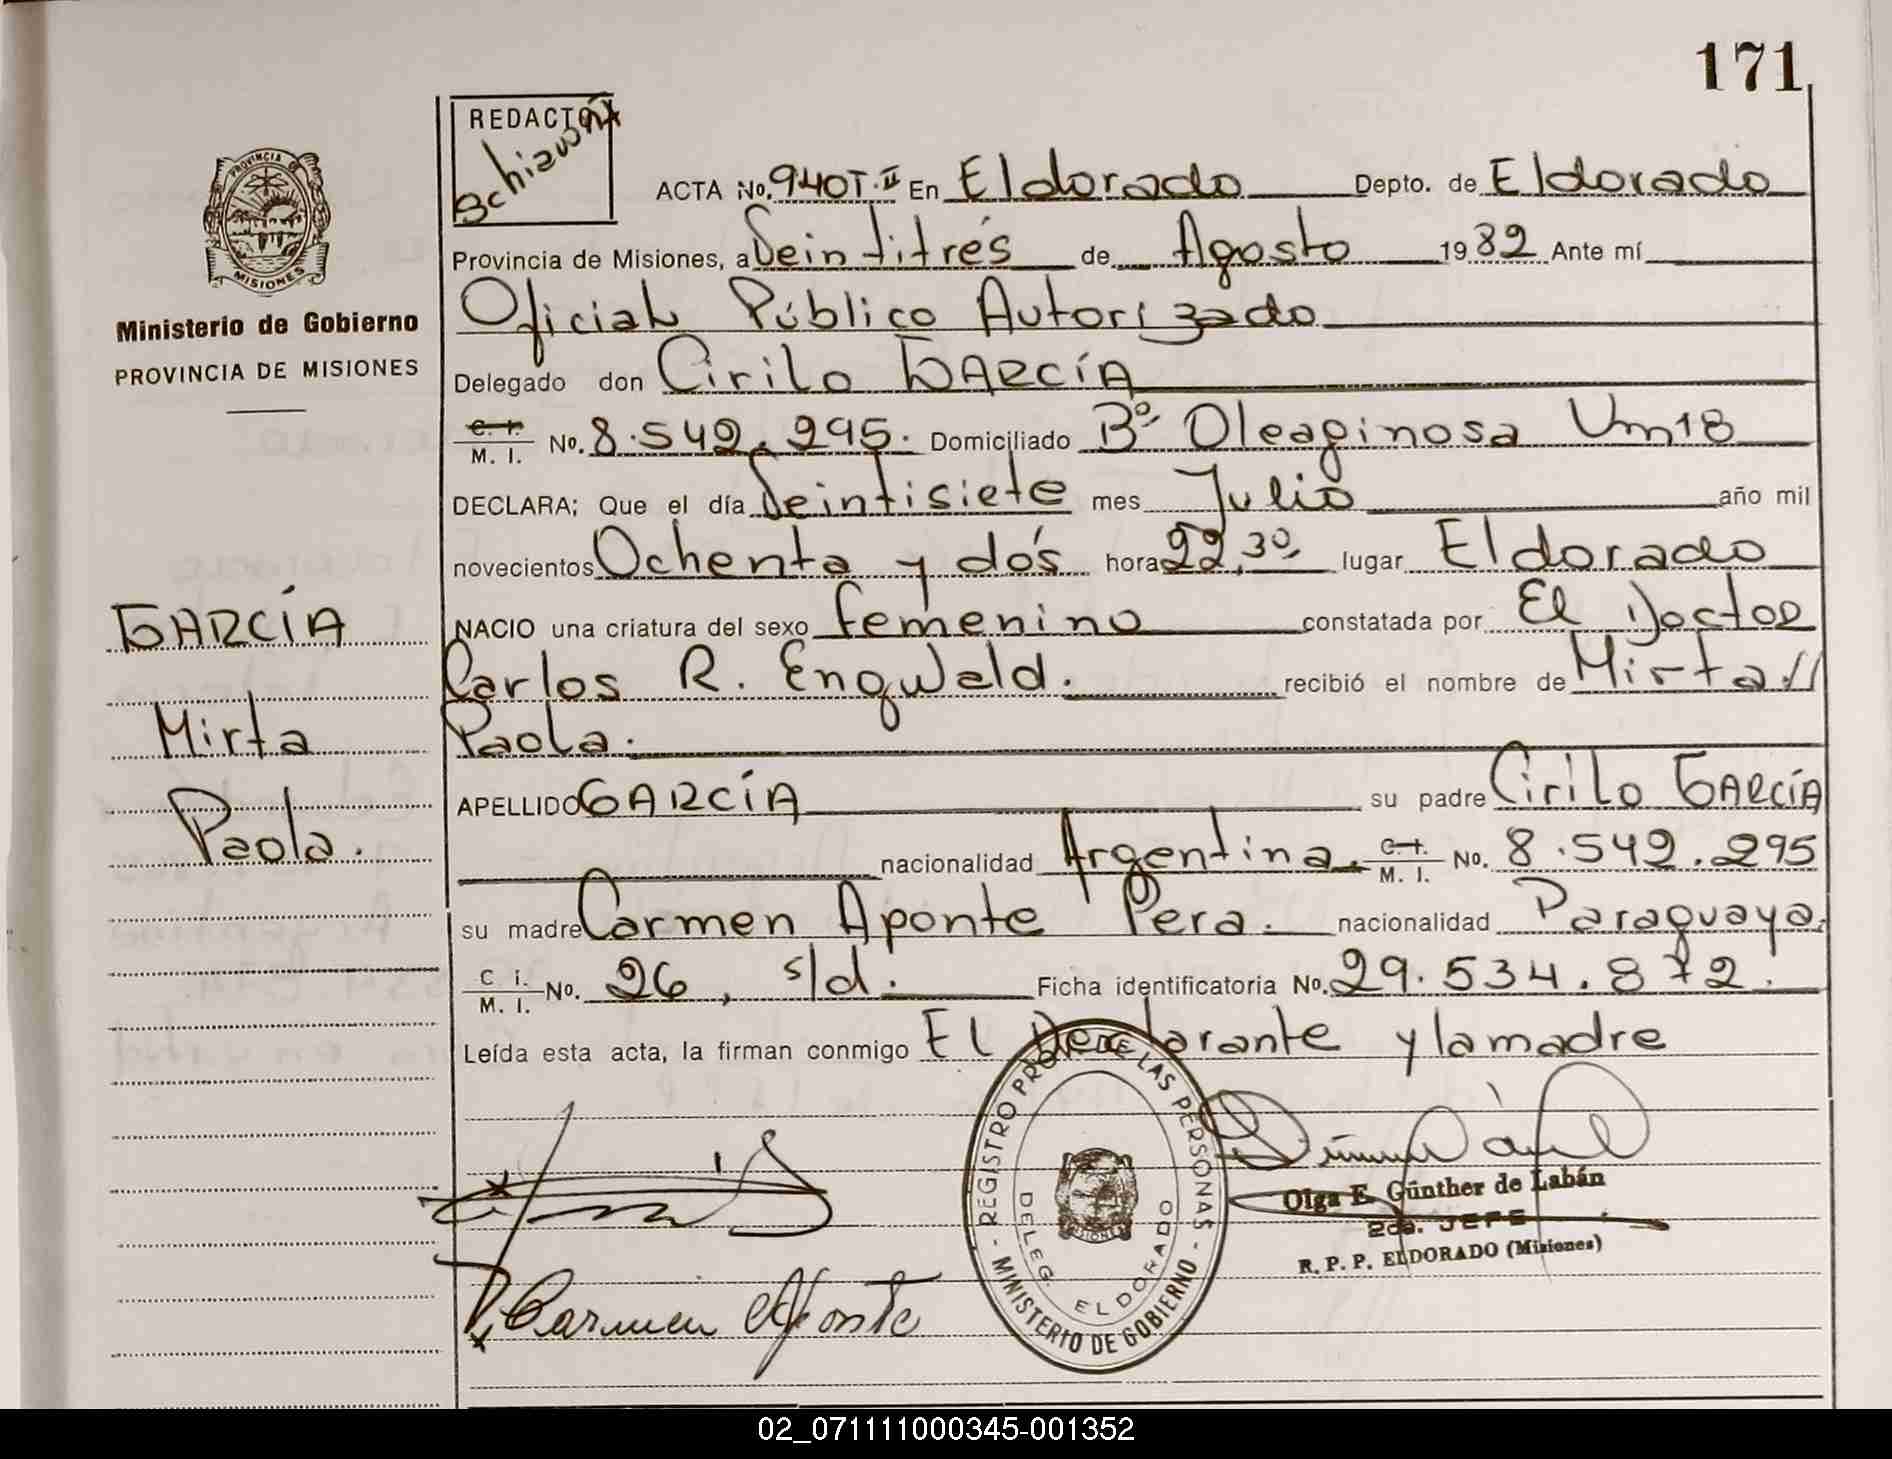 171
REDACTOR
PROVINCIA DE
MISIONES
Ministerio de Gobierno
PROVINCIA DE MISIONES
ACTA No. 940 T. II En Eldorado Depto. de Eldorado
Provincia de Misiones, a Veintitrés de Agosto 1982 Ante mí
Oficial Público Autorizado
Delegado don Cirilo GARCÍA
C. I. M. I. No. 8.542.295. Domiciliado B° Oleaginosa Km 18
DECLARA; Que el día Veintisiete mes Julio año mil
novecientos Ochenta y dós hora 22,30, lugar Eldorado
NACIO una criatura del sexo femenino constatada por El Doctor
Carlos R. Engwald. recibió el nombre de Mirta //
Paola.
APELLIDO GARCÍA su padre Cirilo GARCÍA
nacionalidad Argentina. C. I. M. I. No. 8.542.295
su madre Carmen Aponte Pera. nacionalidad Paraguaya.
C I. M. I. No. 26, s/d. Ficha identificatoria No. 29.534.872.
Leída esta acta, la firman conmigo El Declarante y la madre
GARCÍA
Mirta
Paola.
Carmen Aponte
REGISTRO PROV. DE LAS PERSONAS
DELEG. ELDORADO
MISIONES
- MINISTERIO DE GOBIERNO -
Olga E. Günther de Labán
2da. JEFE
R. P. P. ELDORADO (Misiones)
02_071111000345-001352